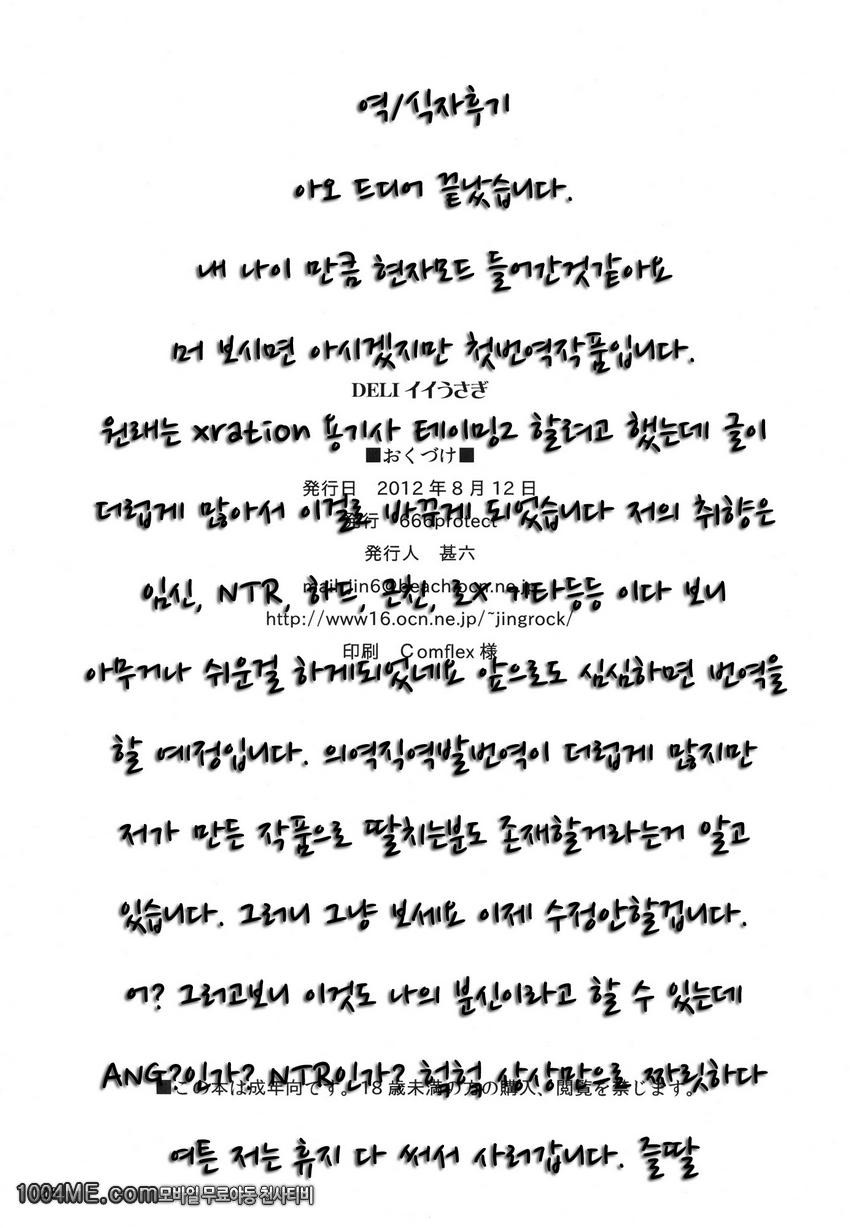 역/식자후기
아오 드디어 끝났습니다.
내 나이 만큼 현자모드 들어간것같아요
머 보시면 아시겠지만 첫번역작품입니다.
DELI イイうさぎ
원래는 xration 용기사 테이밍2 할려고 했는데 글이
■おくづけ■
発行日 2012年8月12日
더럽게 많아서 이걸로 바꾸게 되었습니다 저의 취향은
発行 666protect
発行人 甚六
임신, NTR, 하프, 근친, 2X 기타등등 이다 보니
http://www16.ocn.ne.jp/~jingrock/
印刷 Comflex様
아무거나 쉬운걸 하게되었네요 앞으로도 심심하면 번역을
할 예정입니다. 의역직역발번역이 더럽게 많지만
저가 만든 작품으로 딸치는분도 존재할거라는거 알고
있습니다. 그러니 그냥 보세요 이제 수정안할겁니다.
어? 그러고보니 이것도 나의 분신이라고 할 수 있는데
ANG?인가? NTR인가? 헉헉 상상만으로 짜릿하다
■この本は成年向です。18歳未満の方の購入、閲覧を禁じます。
여튼 저는 휴지 다 써서 사러갑니다. 즐딸
1004ME.com모바일 무료야동 천사티비